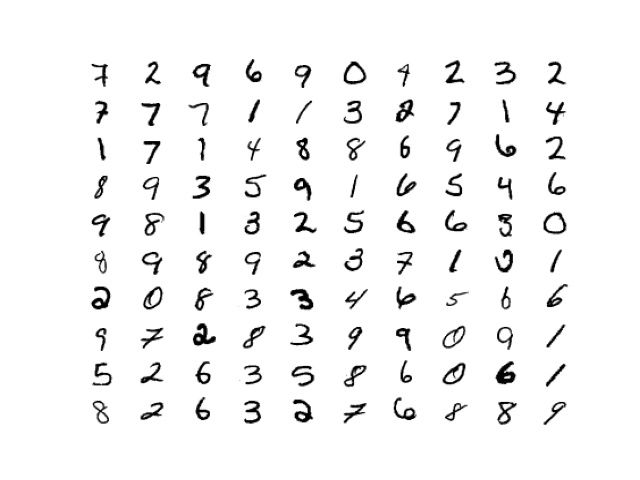 7 2 9 6 9 0 4 2 3 2
7 7 7 1 1 3 2 7 1 4
1 7 1 4 8 8 6 9 6 2
8 9 3 5 9 1 6 5 4 6
9 8 1 3 2 5 6 6 3 0
8 9 8 9 2 3 7 1 0 1
2 0 8 3 3 4 6 5 6 6
9 7 2 8 3 9 9 0 9 1
5 2 6 3 5 8 6 0 6 1
8 2 6 3 2 7 6 8 8 9